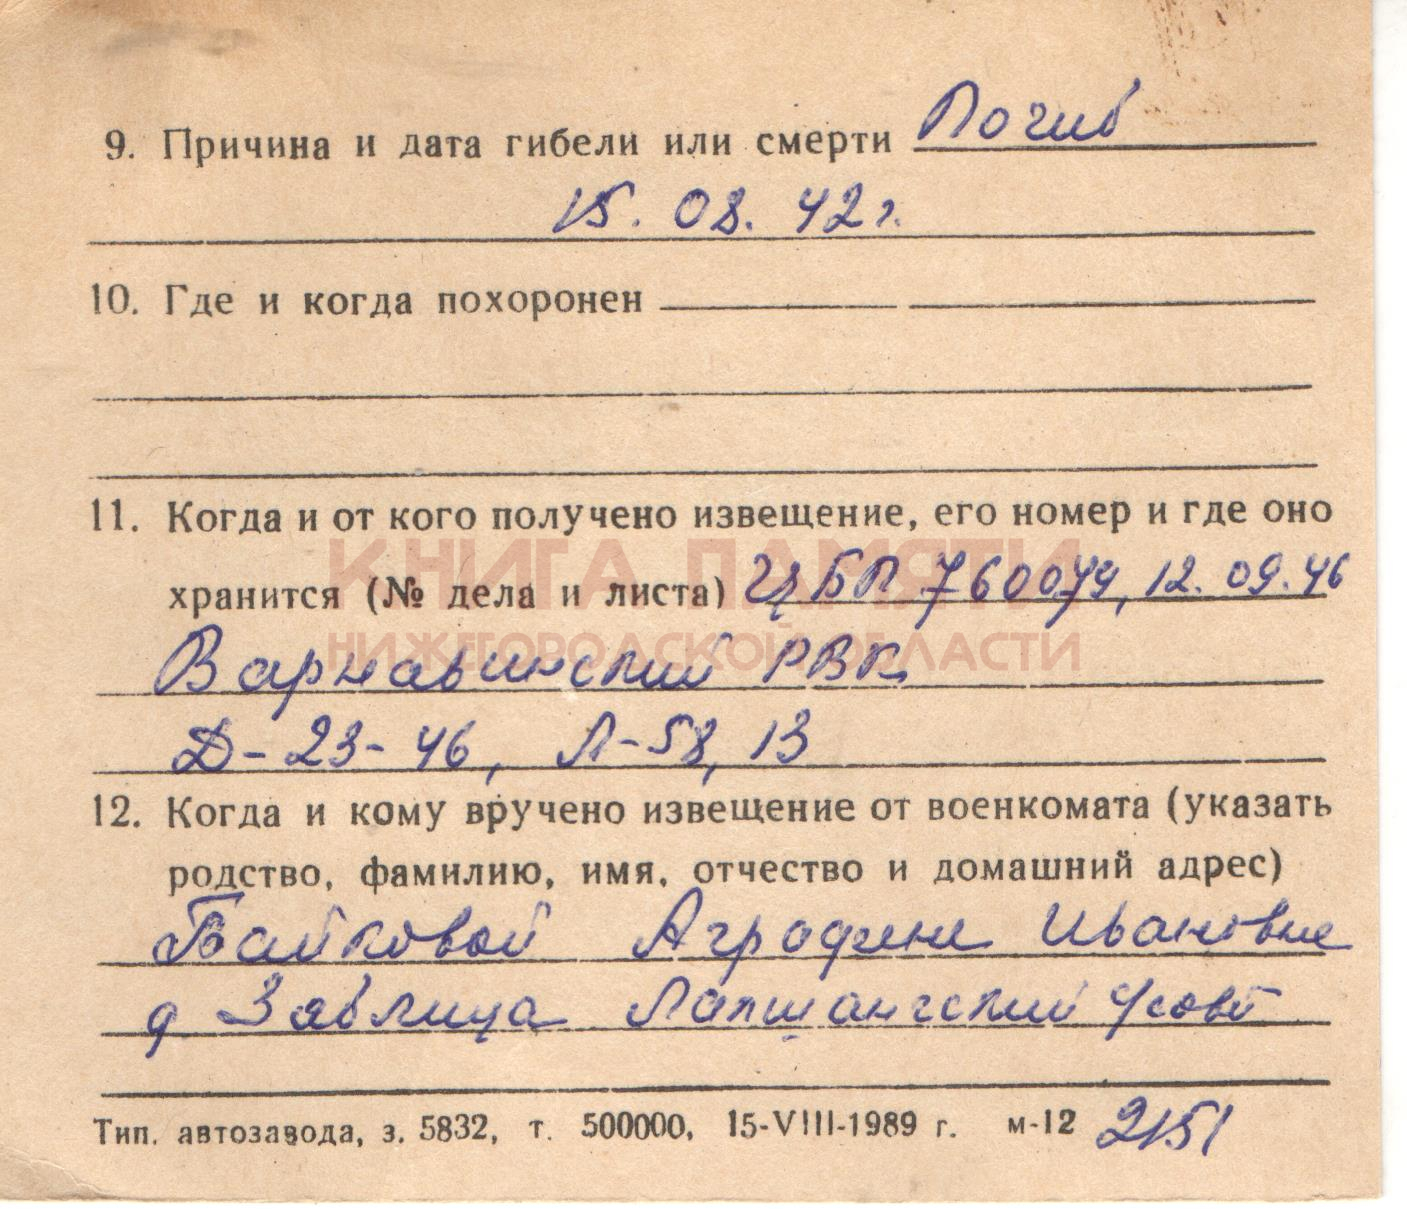 9. Причина и дата гибели или смерти Погиб
15. 08. 42 г.
10. Где и когда похоронен
11. Когда и от кого получено извещение, его номер и где оно
хранится (№ дела и листа) ЦБП 760079, 12. 09. 46
КНИГА ПАМЯТИ
НИЖЕГОРОДСКОЙ ОБЛАСТИ
Варнавинский РВК
Д-23-46, Л-58, 13
12. Когда и кому вручено извещение от военкомата (указать
родство, фамилию, имя, отчество и домашний адрес)
Байковой Аграфене Ивановне
д Зяблица Лапшангский с/совет
Тип. автозавода, з. 5832, т. 500000, 15-VIII-1989 г. м-12 2151